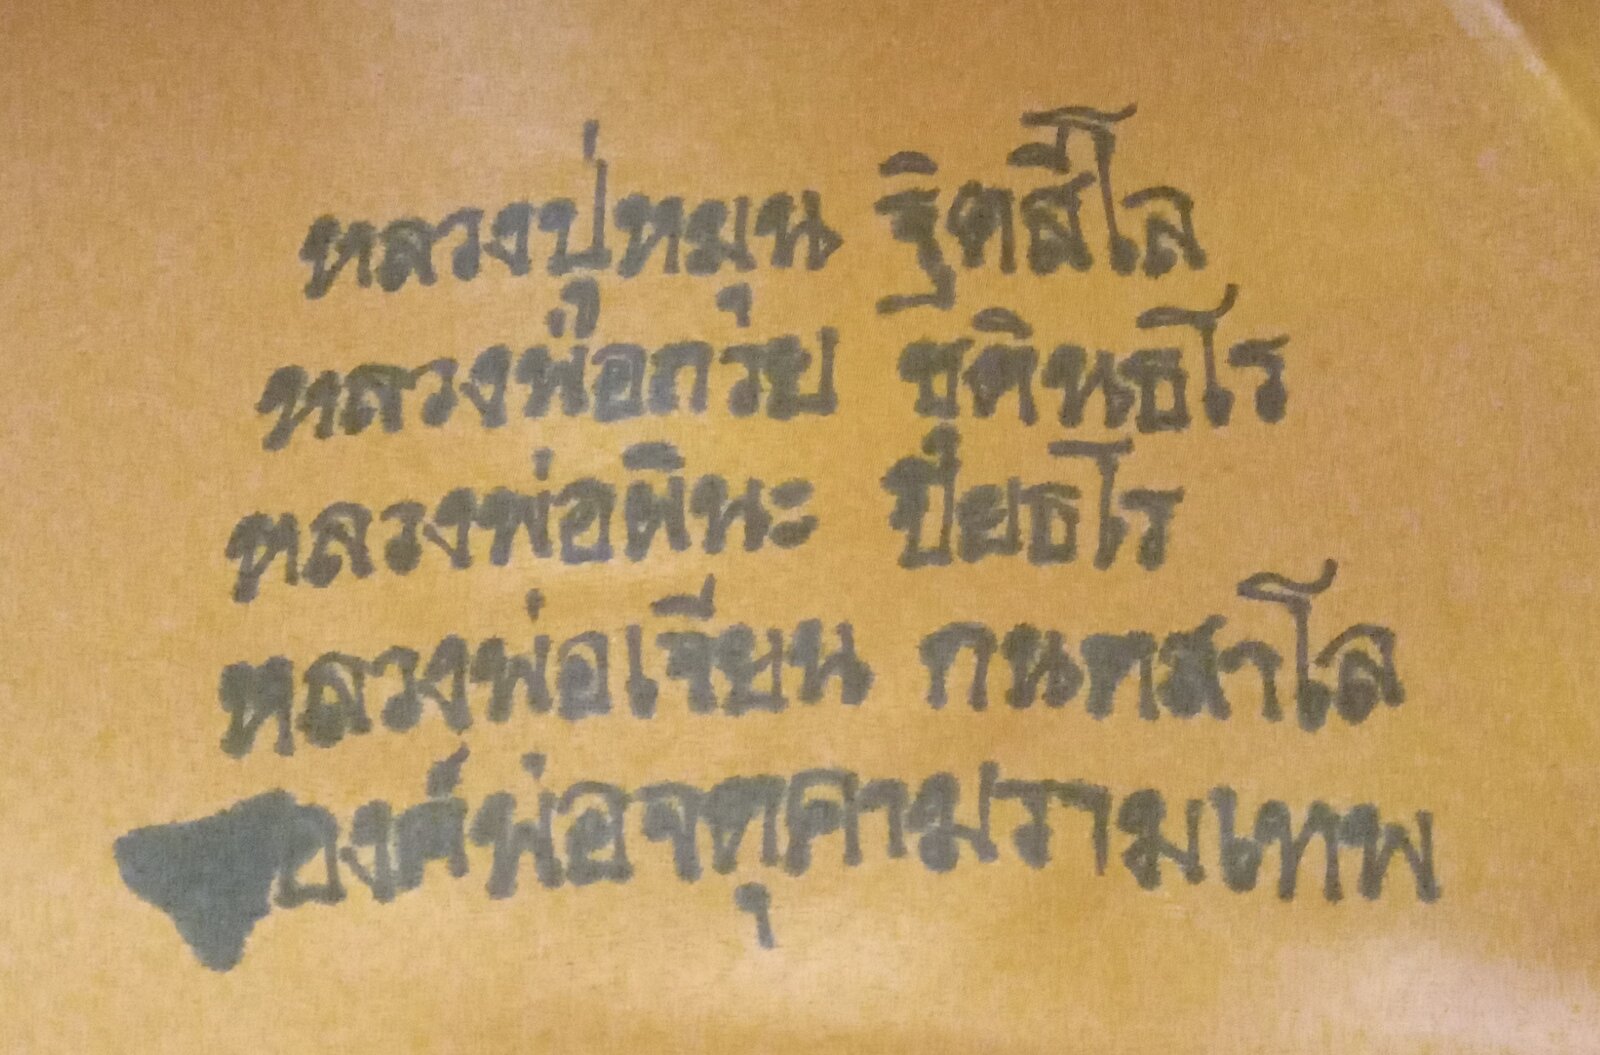 หลวงปู่หมุน ฐิตสีโล
หลวงพ่อกวย ชุตินธโร
หลวงพ่อพินะ ปิยธโร
หลวงพ่อเจียน กนตสาโล
องค์พ่อจตุคามรามเทพ